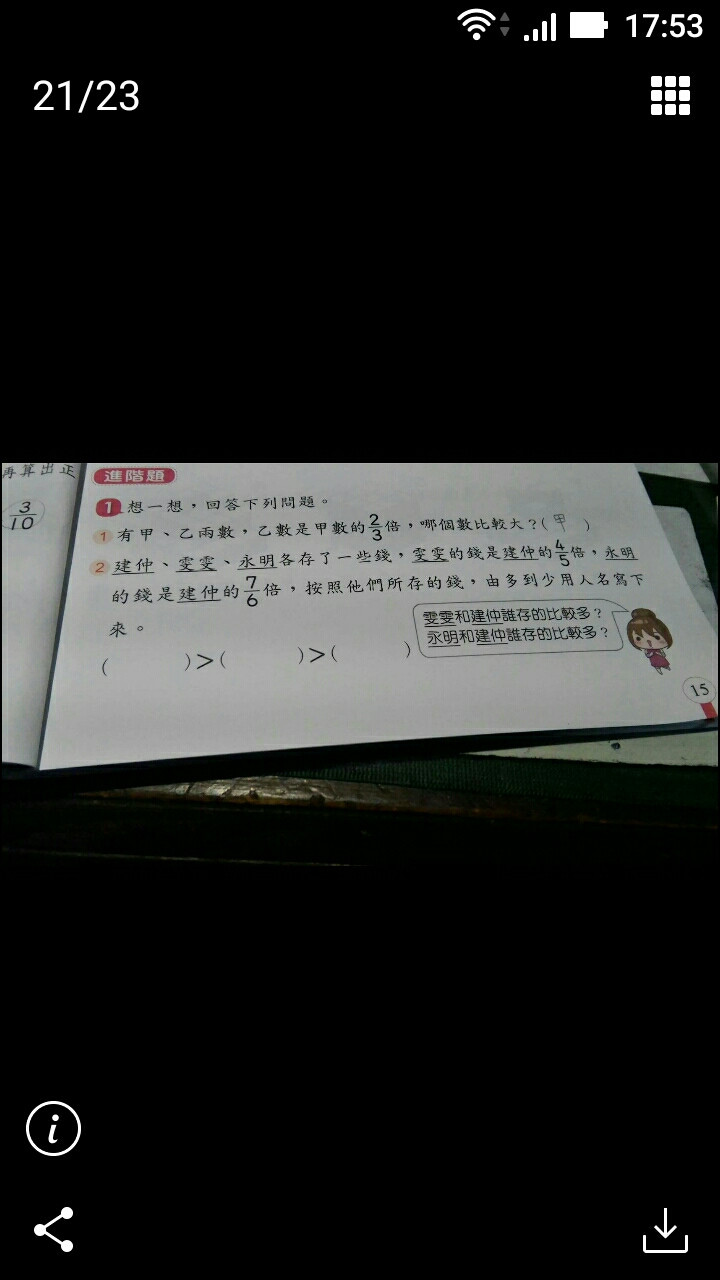 17:53
21/23
再算出正
3/10
進階題
1 想一想，回答下列問題。
1 有甲、乙兩數，乙數是甲數的2/3倍，哪個數比較大？( 甲 )
2 建仲、雯雯、永明各存了一些錢，雯雯的錢是建仲的4/5倍，永明
的錢是建仲的7/6倍，按照他們所存的錢，由多到少用人名寫下
來。
雯雯和建仲誰存的比較多？
永明和建仲誰存的比較多？
( )>( )>( )
15